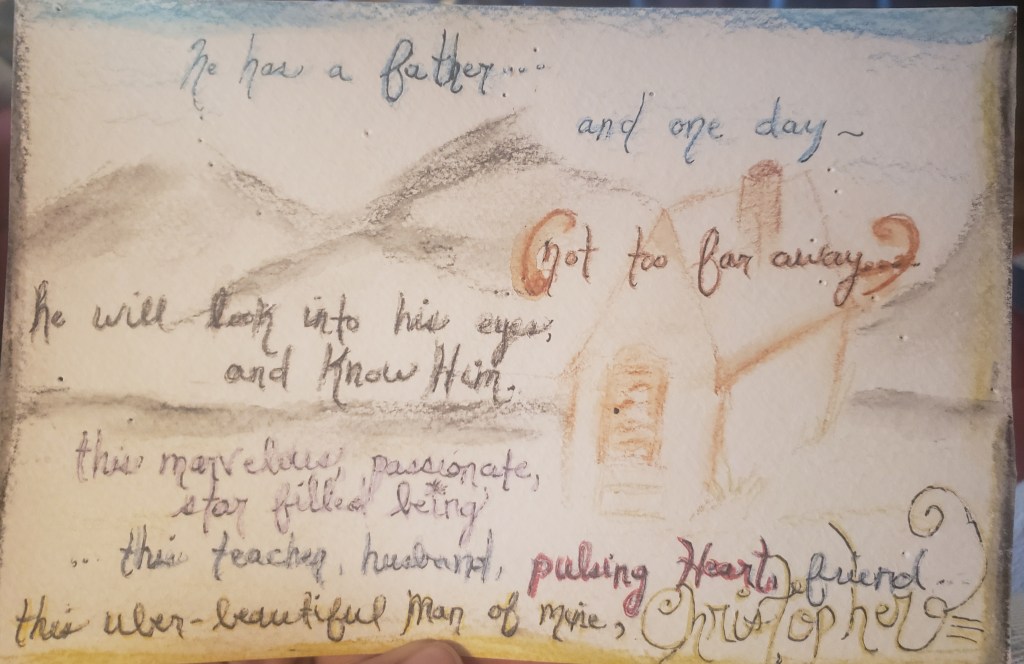 he has a father....
and one day ~
(not too far away....)
he will look into his eyes,
and Know Him.
this marvelous, passionate,
star filled being
... this teacher, husband, pulsing Heart, friend...
this uber-beautiful Man of mine, Christopher